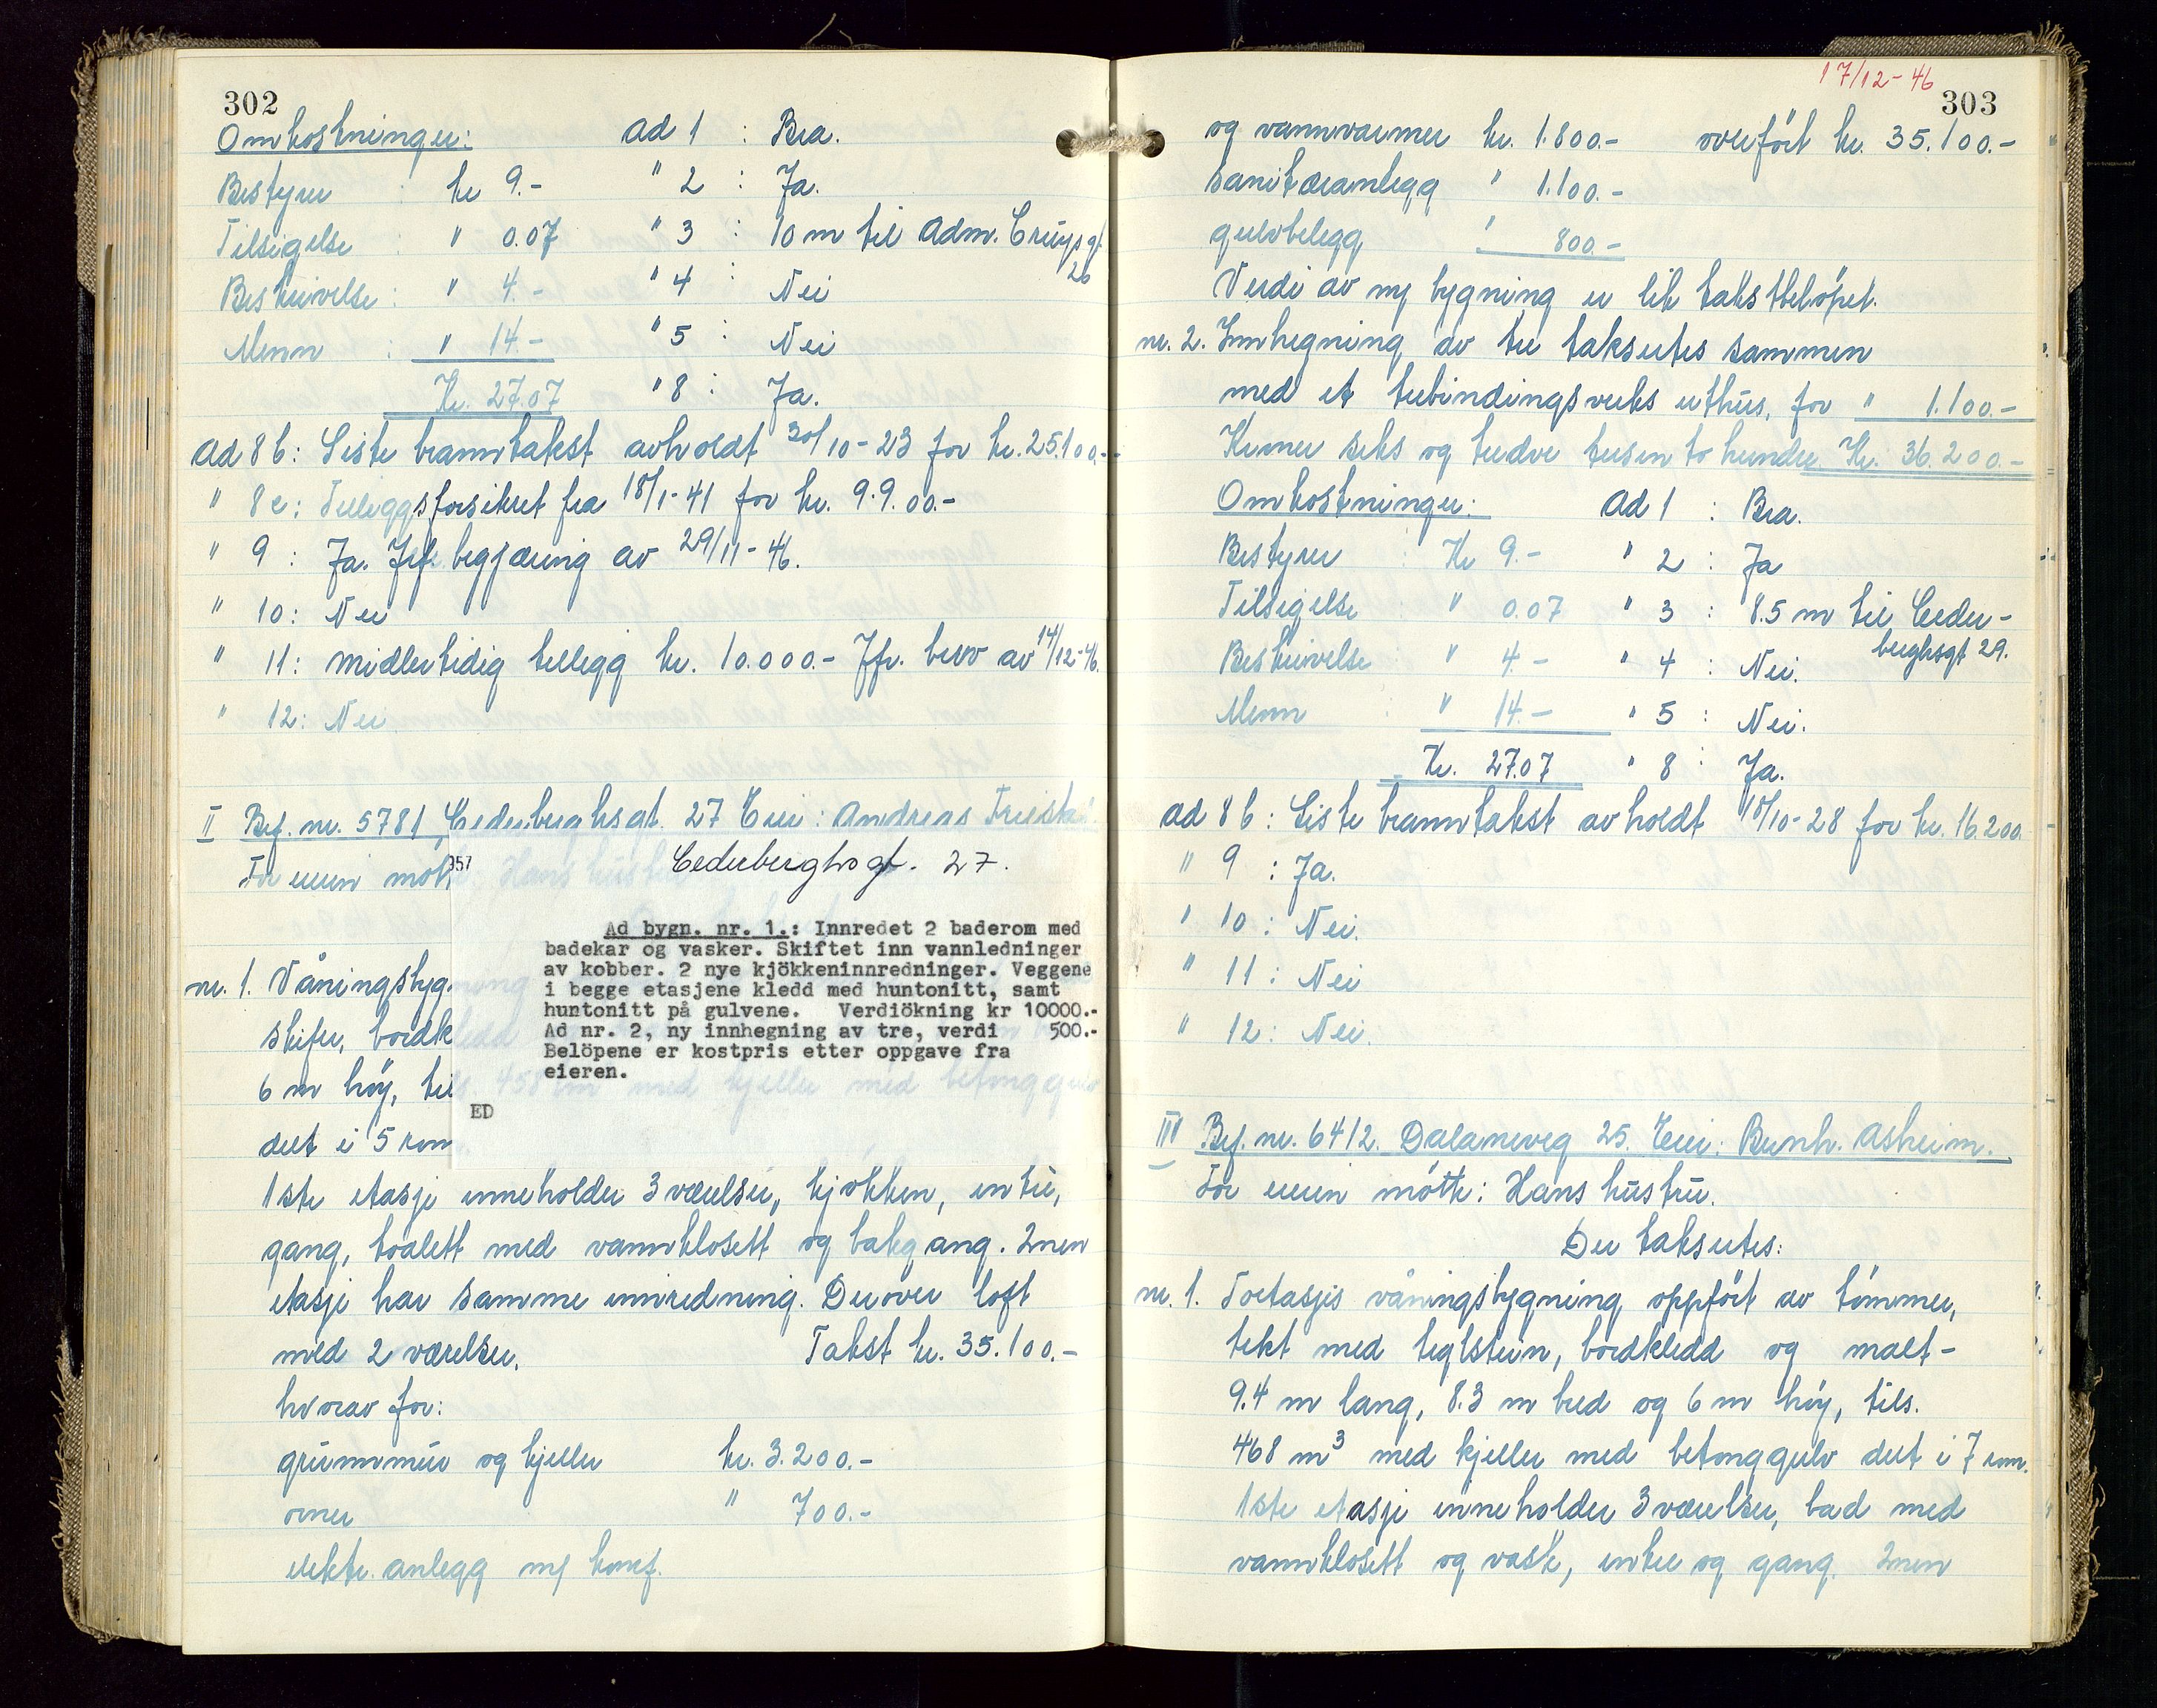 302
Omkostninger: ad 1 : Bra.
Bestyrer : kr 9.- " 2 : Ja.
Tilsigelse : " 0.07 " 3 : 10 m til Adm. Cruysgt.
26
Beskrivelse : " 4.- " 4 : Nei
Menn : " 14.- " 5 : Nei
Kr. 27.07 " 8 : Ja.
ad 8 b: Siste branntakst avholdt 30/10-23 for kr. 25.100.-
" 8 c: Tilleggsforsikret fra 18/1-41 for kr. 9.900.-
" 9 : Ja. Jfr. begjæring av 29/11-46.
" 10: Nei
" 11: midlertidig tillegg kr. 10.000.- Jfr. brev av 14/12-46.
" 12: Nei
II Brf. nr. 5781, Cederberghsgt. 27 Eier: Andreas
For eieren møtte: Hans hustru
957
Cederberghsgt. 27.
Ad bygn. nr. 1.: Innredet 2 baderom med
badekar og vasker. Skiftet inn vannledninger
av kobber. 2 nye kjökkeninnredninger. Veggene
i begge etasjene kledd med huntonitt, samt
huntonitt på gulvene. Verdiökning kr 10000.-
Ad nr. 2, ny innhegning av tre, verdi 500.-
Belöpene er kostpris etter oppgave fra
eieren.
ED
nr. 1. Våningsbygning
skifer, bordkledd
6 m høy, tils. 458 m³ med kjeller med betonggulv
delt i 5 rom.
1ste etasje inneholder 3 værelser, kjøkken, entre,
gang, toalett med vannklosett og bakgang. 2nen
etasje har samme innredning. Derover loft
med 2 værelser. Takst kr. 35.100.-
hvorav for:
grunnmur og kjeller kr. 3.200.-
ovner " 700.-
elektr. anlegg m/ komf.
17/12-46
303
og vannvarmer kr. 1.800.- overført kr. 35.100.-
sanitæranlegg " 1.100.-
gulvbelegg " 800.-
Verdi av ny bygning er lik takstbeløpet.
nr. 2. Innhegning av tre taksertes sammen
med et trebindingsverks uthus, for " 1.100.-
Kroner seks og tredve tusen to hundre Kr. 36.200.-
Omkostninger: ad 1 : Bra.
Bestyrer : Kr 9.- " 2 : Ja
Tilsigelse : " 0.07 " 3 : 8.5 m til Ceder-
berghsgt 29.
Beskrivelse : " 4.- " 4 : Nei.
Menn : " 14.- " 5 : Nei.
Kr. 27.07 " 8 : Ja.
ad 8 b : Siste branntakst avholdt 18/10-28 for kr. 16.200.
" 9 : Ja.
" 10 : Nei.
" 11 : Nei
" 12 : Nei.
III Brf. nr. 6412. Dalaneveg 25. Eier: Bernh. Asheim.
For eieren møtte: Hans hustru.
Der taksertes:
nr. 1. Toetasjes våningsbygning oppført av tømmer,
tekt med teglstein, bordkledd og malt-
9.4 m lang, 8.3 m bred og 6 m høy, tils.
468 m³ med kjeller med betonggulv delt i 7 rom.
1ste etasje inneholder 3 værelser, bad med
vannklosett og vask, entre og gang. 2nen